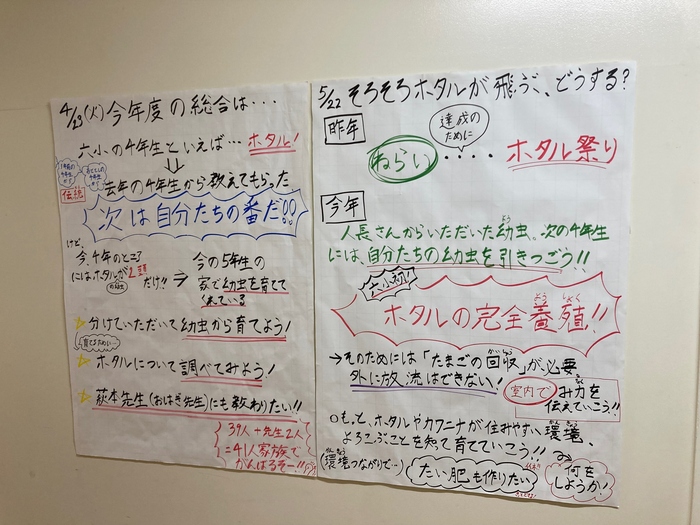 4/23(火)今年度の総合は・・・
六小の4年生といえば・・・ホタル!
伝統
去年の4年生から教えてもらった
次は自分たちの番だ!!
けど、
今、4年のところ
にはホタルが2頭
だけ!!
の幼虫
⇒
今の5年生の
家で幼虫を育てて
くれている
分けていただいて幼虫から育てよう!
育てるために…
ホタルについて調べてみよう!
萩本先生(おはぎ先生)にも教わりたい!!
39人+先生2人
=41人家族で
がんばるぞー!!
5/22 そろそろホタルが飛ぶぞ、どうする?
昨年
達成の
ために
ねらい・・・・ホタル祭り
今年
人長さんからいただいた幼虫。次の4年生
よう
には、自分たちの幼虫を引きつごう!!
六小初!
ようしょく
ホタルの完全養殖!!
→そのためには「たまごの回収」が必要
外に放流はできない!
室内で
み力を
伝えていこう!!
○もっと、ホタルやカワニナが住みやすい環境、
よろこぶことを知って育てていこう!!
(環境つながりで…)
たい肥も作りたい
何を
しようか!